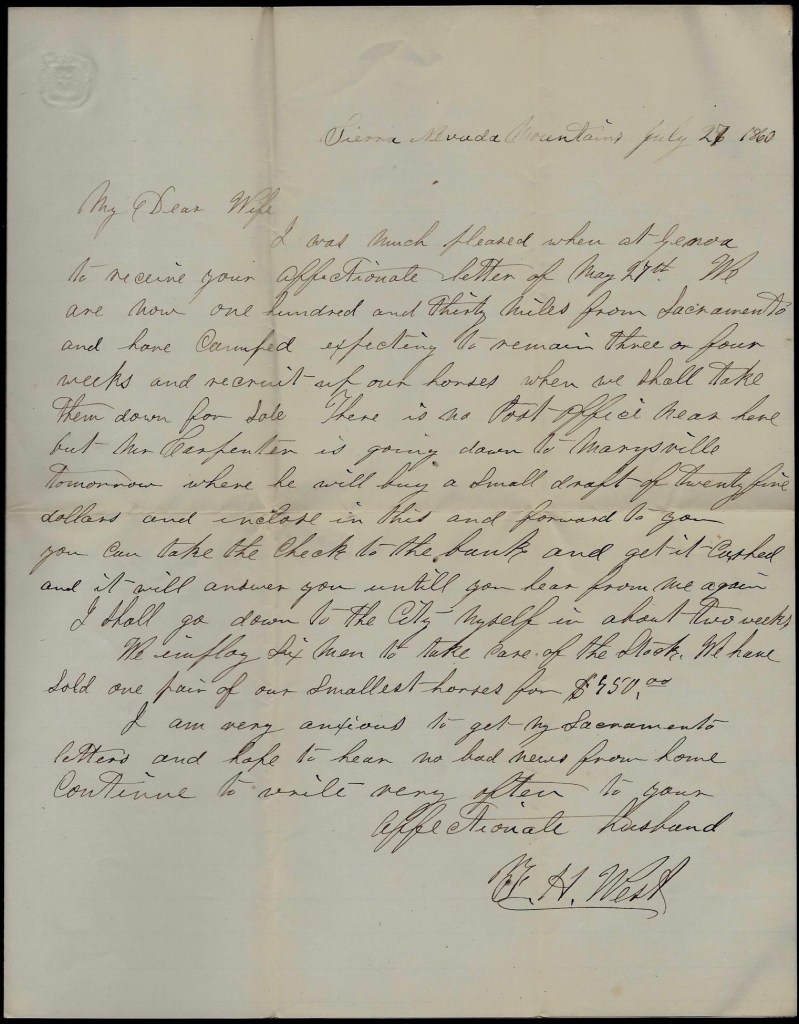 Sierra Nevada Mountains July 27 1860
My Dear Wife
I was much pleased when at Genoa
to receive your affectionate letter of May 27th. We
are now one hundred and thirty miles from Sacramento
and have camped expecting to remain three or four
weeks and recruit up our horses when we shall take
them down for sale There is no Post Office near here
but Mr Carpenter is going down to Marysville
tomorrow where he will buy a small draft of twenty five
dollars and inclose in this and forward to you
you can take the check to the bank and get it cashed
and it will answer you untill you hear from me again
I shall go down to the City myself in about two weeks
We employ six men to take care of the Stock. We have
sold one pair of our smallest horses for $450.00
I am very anxious to get my Sacramento
letters and hope to hear no bad news from home
Continue to write very often to your
affectionate husband
H. West